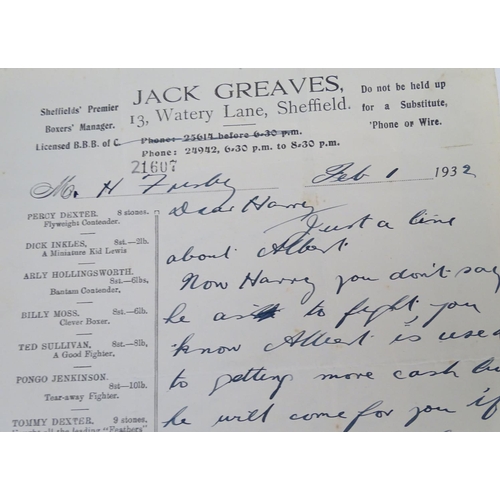 JACK GREAVES,
13, Watery Lane, Sheffield.
Sheffields' Premier
Boxers' Manager.
Licensed B.B.B. of C.
Do not be held up
for a Substitute,
'Phone or Wire.
Phone: 25614 before 6-30 p.m.
Phone: 24942, 6-30 p.m. to 8-30 p.m.
21607
M. H Frisby Feb 1 1932
PERCY DEXTER. 8 stones.
Flyweight Contender.
DICK INKLES, 8st.—2lb.
A Miniature Kid Lewis
ARLY HOLLINGSWORTH.
8st.—6lbs.
Bantam Contender,
BILLY MOSS. 8st.—6lb.
Clever Boxer.
TED SULLIVAN, 8st.—8lb,
A Good Fighter,
PONGO JENKINSON.
8st.—10lb.
Tear-away Fighter.
TOMMY DEXTER. 9 stones.
all the leading "Feathers"
Dear Harry
Just a line
about Albert
Now Harry you don't say
he as to fight you
know Albert is used
to getting more cash but
he will come for you if